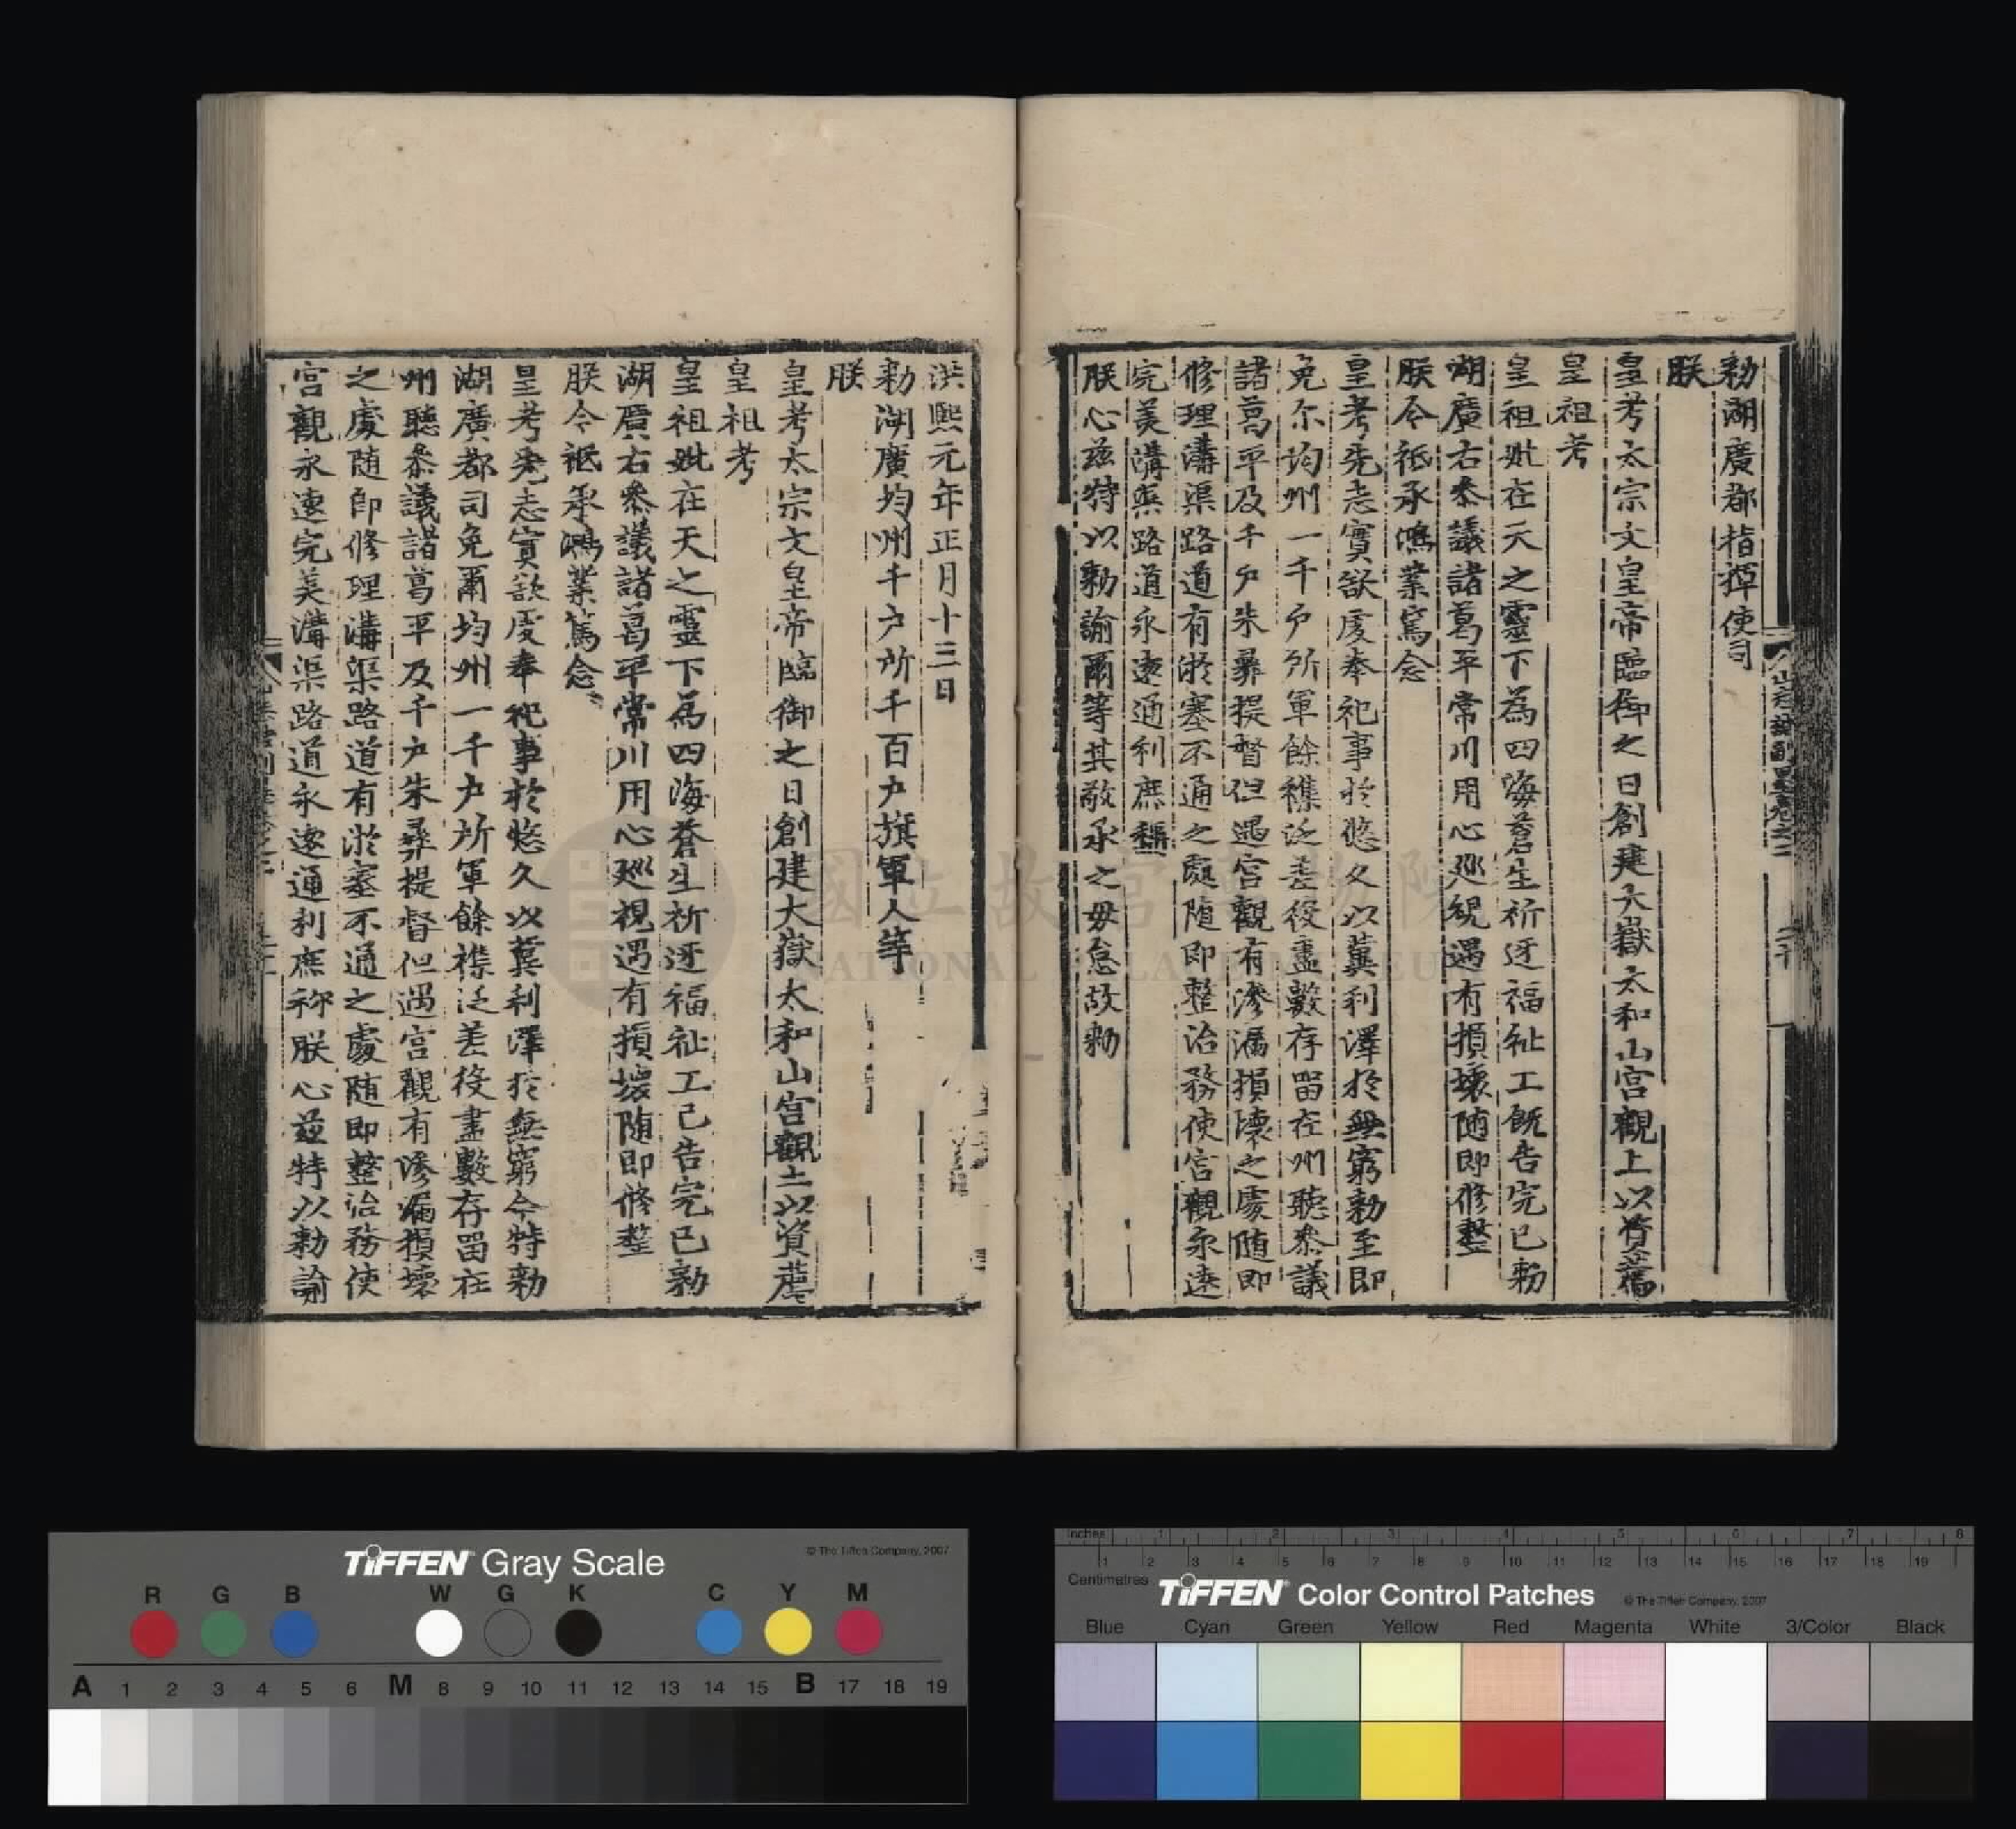 勑湖廣都指揮使司
朕
皇考太宗文皇帝臨御之日創建大嶽太和山宫觀上以資薦
皇祖考
皇祖妣在天之靈下為四海蒼生祈迓福祉工既告完已勑
湖廣右叅議諸葛平常川用心廵視遇有損壞随即修整
朕今祗承鴻業篤念
皇考先志實欲虔奉祀事於悠久以冀利澤於無窮勑至即
免尔均州一千户所軍餘襍泛差役盡數存留在州聽叅議
諸葛平及千户朱彝提督但遇宫觀有滲漏損壞之處随即
修理溝渠路道有淤塞不通之處随即整治務使宫觀永遠
完美溝渠路道永遠通利庶稱
朕心兹特以勑諭爾等其敬承之毋怠故勑
洪熙元年正月十三日
勑湖廣均州千户所千百户旗軍人等
朕
皇考太宗文皇帝臨御之日創建大嶽太和山宫觀上以資薦
皇祖考
皇祖妣在天之靈下為四海蒼生祈迓福祉工已告完已勑
湖廣右叅議諸葛平常川用心廵視遇有損壞随即修整
朕今祗承鴻業篤念
皇考先志實欲虔奉祀事於悠久以冀利澤於無窮今特勑
湖廣都司免爾均州一千户所軍餘襍泛差役盡數存留在
州聽叅議諸葛平及千户朱彝提督但遇宫觀有滲漏損壞
之處随即修理溝渠路道有淤塞不通之處随即整治務使
宫觀永遠完美溝渠路道永遠通利庶称朕心兹特以勑諭
國立故宮博物院
NATIONAL PALACE MUSEUM
TIFFEN Gray Scale
© The Tiffen Company, 2007
R G B W G K C Y M
A 1 2 3 4 5 6 M 8 9 10 11 12 13 14 15 B 17 18 19
Inches 1 2 3 4 5 6 7 8
1 2 3 4 5 6 7 8 9 10 11 12 13 14 15 16 17 18 19
Centimetres
TIFFEN Color Control Patches
© The Tiffen Company, 2007
Blue Cyan Green Yellow Red Magenta White 3/Color Black